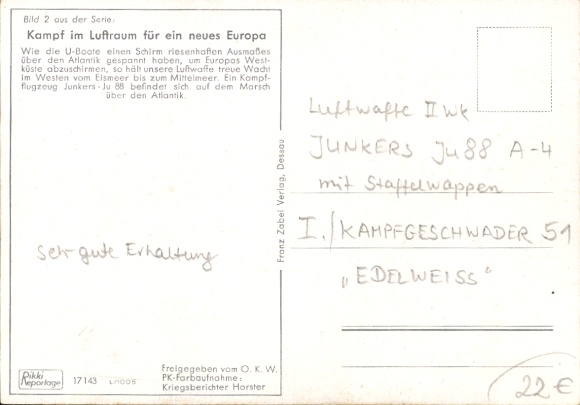 Bild 2 aus der Serie:
Kampf im Luftraum für ein neues Europa
Wie die U-Boote einen Schirm riesenhaften Ausmaßes
über den Atlantik gespannt haben, um Europas West-
küste abzuschirmen, so hält unsere Luftwaffe treue Wacht
im Westen vom Eismeer bis zum Mittelmeer. Ein Kampf-
flugzeug Junkers-Ju 88 befindet sich auf dem Marsch
über den Atlantik.
sehr gute Erhaltung
Rikki
Reportage
17143 L/1005
Freigegeben vom O. K. W.
PK-Farbaufnahme:
Kriegsberichter Horster
Franz Zabel Verlag, Dessau
Luftwaffe II WK
JUNKERS Ju88 A-4
mit Staffelwappen
I./KAMPFGESCHWADER 51
„EDELWEISS"
22 €